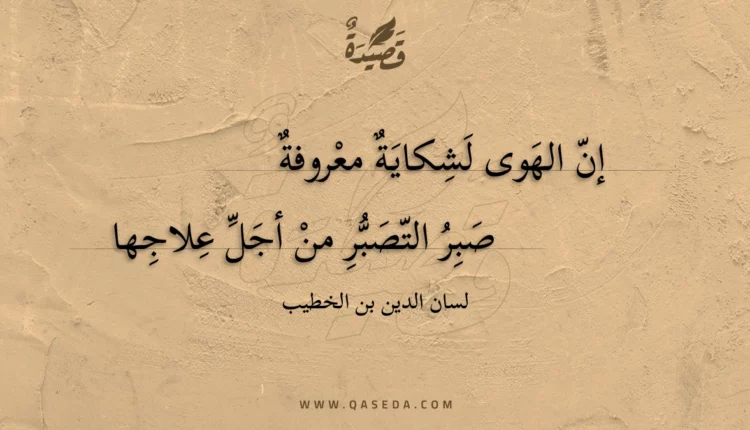 قَصِيدَةٌ
إنّ الهَوى لَشِكايَةٌ معْروفةٌ
صَبِرُ التّصَبُّرِ منْ أجَلِّ عِلاجِها
لسان الدين بن الخطيب
WWW.QASEDA.COM